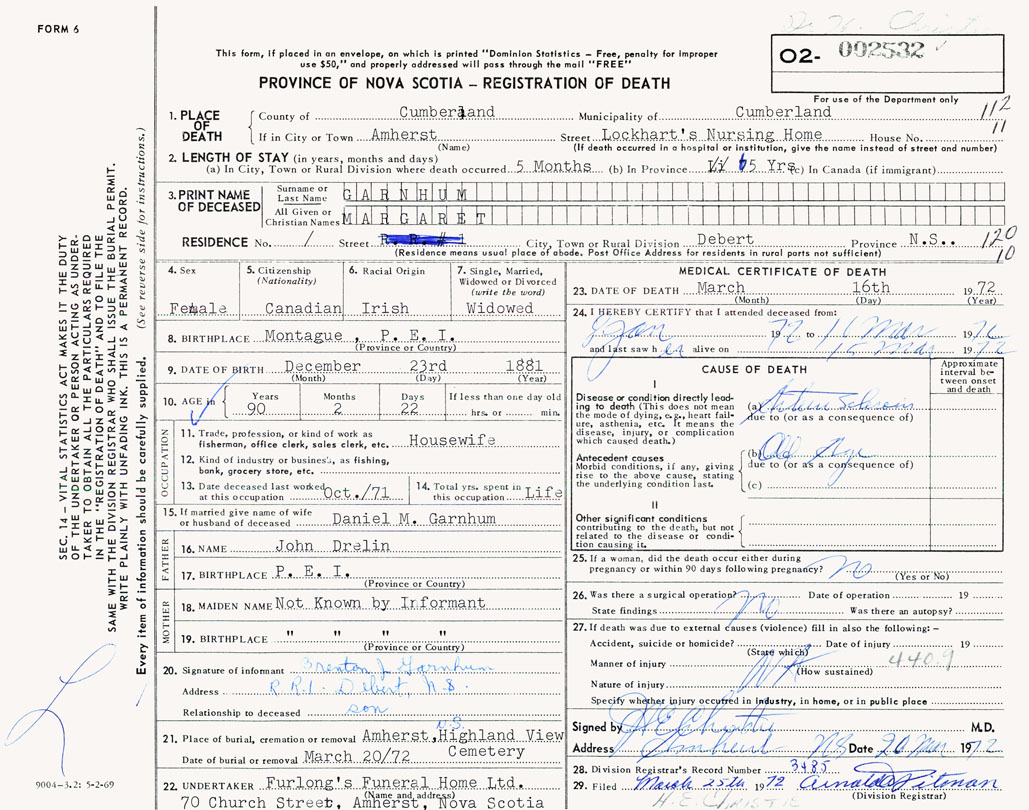 FORM 6
This form, if placed in an envelope, on which is printed "Dominion Statistics – Free, penalty for improper
use $50," and properly addressed will pass through the mail "FREE"
PROVINCE OF NOVA SCOTIA – REGISTRATION OF DEATH
02- 002532
For use of the Department only
1. PLACE OF DEATH
County of Cumberland Municipality of Cumberland 112
If in City or Town Amherst Street Lockhart's Nursing Home House No. 11
(Name) (If death occurred in a hospital or institution, give the name instead of street and number)
2. LENGTH OF STAY (in years, months and days)
(a) In City, Town or Rural Division where death occurred 5 Months (b) In Province 65 Yrs (c) In Canada (if immigrant)
3. PRINT NAME OF DECEASED
Surname or Last Name GARNHUM
All Given or Christian Names MARGARET
RESIDENCE No. / Street R. R. # 1 City, Town or Rural Division Debert Province N.S.. 120
(Residence means usual place of abode. Post Office Address for residents in rural parts not sufficient) 10
4. Sex
Female
5. Citizenship
(Nationality)
Canadian
6. Racial Origin
Irish
7. Single, Married,
Widowed or Divorced
(write the word)
Widowed
8. BIRTHPLACE Montague , P. E. I.
(Province or Country)
9. DATE OF BIRTH December 23rd 1881
(Month) (Day) (Year)
10. AGE in Years Months Days If less than one day old
90 2 22 hrs. or min.
OCCUPATION
11. Trade, profession, or kind of work as
fisherman, office clerk, sales clerk, etc. Housewife
12. Kind of industry or business, as fishing,
bank, grocery store, etc.
13. Date deceased last worked
at this occupation Oct./71
14. Total yrs. spent in
this occupation Life
15. If married give name of wife
or husband of deceased Daniel M. Garnhum
FATHER
16. NAME John Drelin
17. BIRTHPLACE P. E. I.
(Province or Country)
MOTHER
18. MAIDEN NAME Not Known by Informant
19. BIRTHPLACE " " " "
(Province or Country)
20. Signature of informant Brenton J. Garnhum
Address R.R.1. Debert, N.S.
Relationship to deceased son
N.S.
21. Place of burial, cremation or removal Amherst, Highland View
Cemetery
Date of burial or removal March 20/72
22. UNDERTAKER Furlong's Funeral Home Ltd.
(Name and address)
70 Church Street, Amherst, Nova Scotia
MEDICAL CERTIFICATE OF DEATH
23. DATE OF DEATH March 16th 1972
(Month) (Day) (Year)
24. I HEREBY CERTIFY that I attended deceased from:
Jan 1972 to 16 Mar 1972
and last saw her alive on 16 Mar 1972
CAUSE OF DEATH
Approximate
interval be-
tween onset
and death
I
Disease or condition directly lead-
ing to death (This does not mean
the mode of dying, e.g., heart fail-
ure, asthenia, etc. It means the
disease, injury, or complication
which caused death.)
(a)
due to (or as a consequence of)
Antecedent causes
Morbid conditions, if any, giving
rise to the above cause, stating
the underlying condition last.
(b) Old Age
due to (or as a consequence of)
(c)
II
Other significant conditions
contributing to the death, but not
related to the disease or condi-
tion causing it.
25. If a woman, did the death occur either during
pregnancy or within 90 days following pregnancy? No
(Yes or No)
26. Was there a surgical operation? No Date of operation 19
State findings Was there an autopsy?
27. If death was due to external causes (violence) fill in also the following: –
Accident, suicide or homicide? Date of injury 19
(State which) 440.9
Manner of injury
(How sustained)
Nature of injury
Specify whether injury occurred in industry, in home, or in public place
Signed by H E Christie M.D.
Address Amherst NS Date 20 Mar 1972
28. Division Registrar's Record Number 3485
29. Filed March 25th 1972 Pitman
(Division Registrar)
H. E. CHRISTIE
SEC. 14 – VITAL STATISTICS ACT MAKES IT THE DUTY
OF THE UNDERTAKER OR PERSON ACTING AS UNDER-
TAKER TO OBTAIN ALL THE PARTICULARS REQUIRED
IN THE "REGISTRATION OF DEATH" AND TO FILE THE
SAME WITH THE DIVISION REGISTRAR WHO SHALL ISSUE THE BURIAL PERMIT.
WRITE PLAINLY WITH UNFADING INK. THIS IS A PERMANENT RECORD.
Every item of information should be carefully supplied. (See reverse side for instructions.)
9004–3.2: 5-2-69